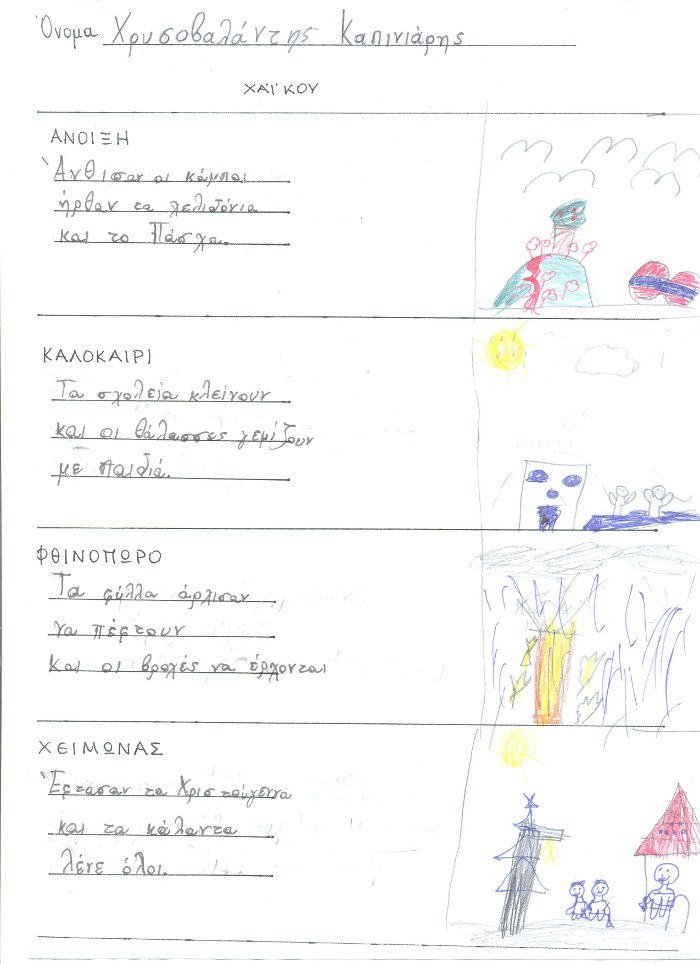 Όνομα Χρυσοβαλάντης Καπινιάρης
ΧΑΪΚΟΥ
ΑΝΟΙΞΗ
Άνθισαν οι κάμποι
ήρθαν τα χελιδόνια
και το Πάσχα.
ΚΑΛΟΚΑΙΡΙ
Τα σχολεία κλείνουν
και οι θάλασσες γεμίζουν
με παιδιά.
ΦΘΙΝΟΠΩΡΟ
Τα φύλλα άρχισαν
να πέφτουν
και οι βροχές να έρχονται
ΧΕΙΜΩΝΑΣ
Έφτασαν τα Χριστούγεννα
και τα κάλαντα
λένε όλοι.